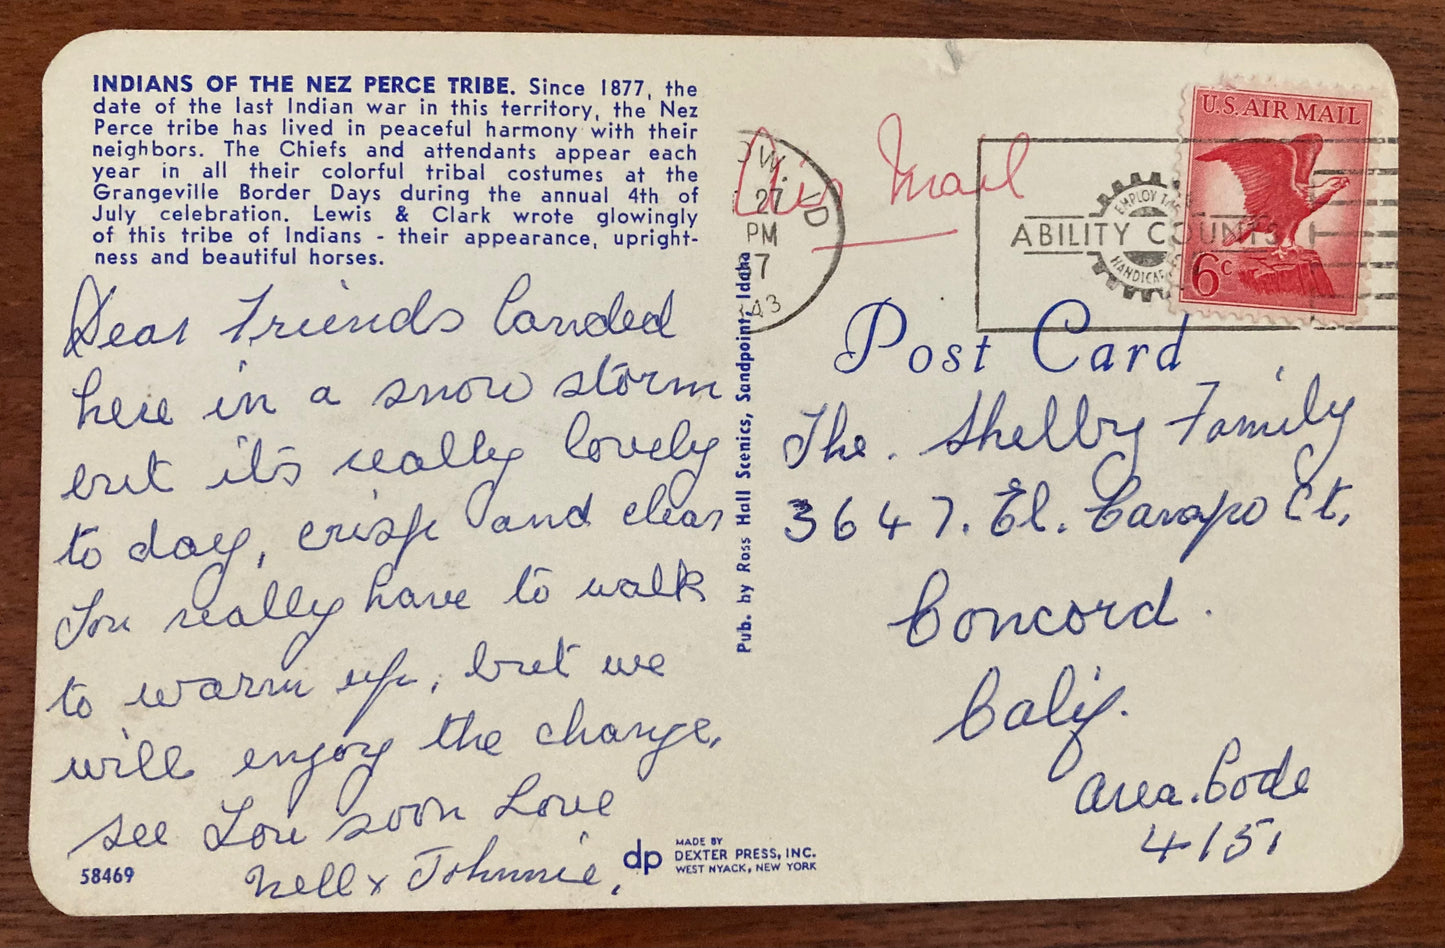 INDIANS OF THE NEZ PERCE TRIBE. Since 1877, the
date of the last Indian war in this territory, the Nez
Perce tribe has lived in peaceful harmony with their
neighbors. The Chiefs and attendants appear each
year in all their colorful tribal costumes at the
Grangeville Border Days during the annual 4th of
July celebration. Lewis & Clark wrote glowingly
of this tribe of Indians - their appearance, upright-
ness and beautiful horses.
Dear Friends Landed
here in a snow storm
but it's really lovely
to day, crisp and clear
You really have to walk
to warm up, but we
will enjoy the change,
see You soon Love
Nell & Johnnie.
58469
dp
MADE BY
DEXTER PRESS, INC.
WEST NYACK, NEW YORK
Pub. by Ross Hall Scenics, Sandpoint, Idaho
OW. ID
27
PM
7
843
Air Mail
EMPLOY
ABILITY COUNTS
HANDICAP
U.S. AIR MAIL
6c
Post Card
The. Shelby Family
3647. El. Ct.
Concord.
Calif.
Area. Code
4151